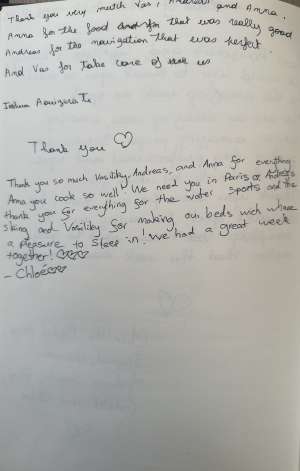 Thank you very mutch Vas, Andreas and Anna.
Anna for the food that was really good
Andreas for the navigation that was perfect
And Vas for take care of us
Thank you
Thank you so much Vasiliky, Andreas, and Anna for everything.
Anna you cook so well, We need you in Paris Andreas
thank you for everything for the water sports and the
sking and Vasiliky for making our beds wich whare
a pleasure to sleep in! We had a great week
together! ♡♡♡
- Chloé♡♡